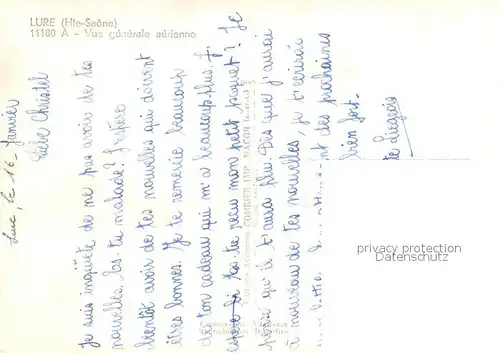 LURE (Hte-Saône)
11180 A - Vue générale aérienne
Luc, le 16 Janvier
Chère Christel
Je suis inquiète de ne pas avoir de tes
nouvelles. Es-tu malade? J'espère
bientôt avoir de tes nouvelles qui doivent
êtres bonnes. Je te remercie beaucoup
de ton cadeau qui m'a beaucoup plus. J'
espère As-tu reçu mon petit paquet? Je
pense qu'il t'aura plu. Dès que j'aurai
à nouveau de tes nouvelles, je t'écrirai
des prochaines
bien fort.
COMBIER IMP. MACON
privacy protection
DMservices